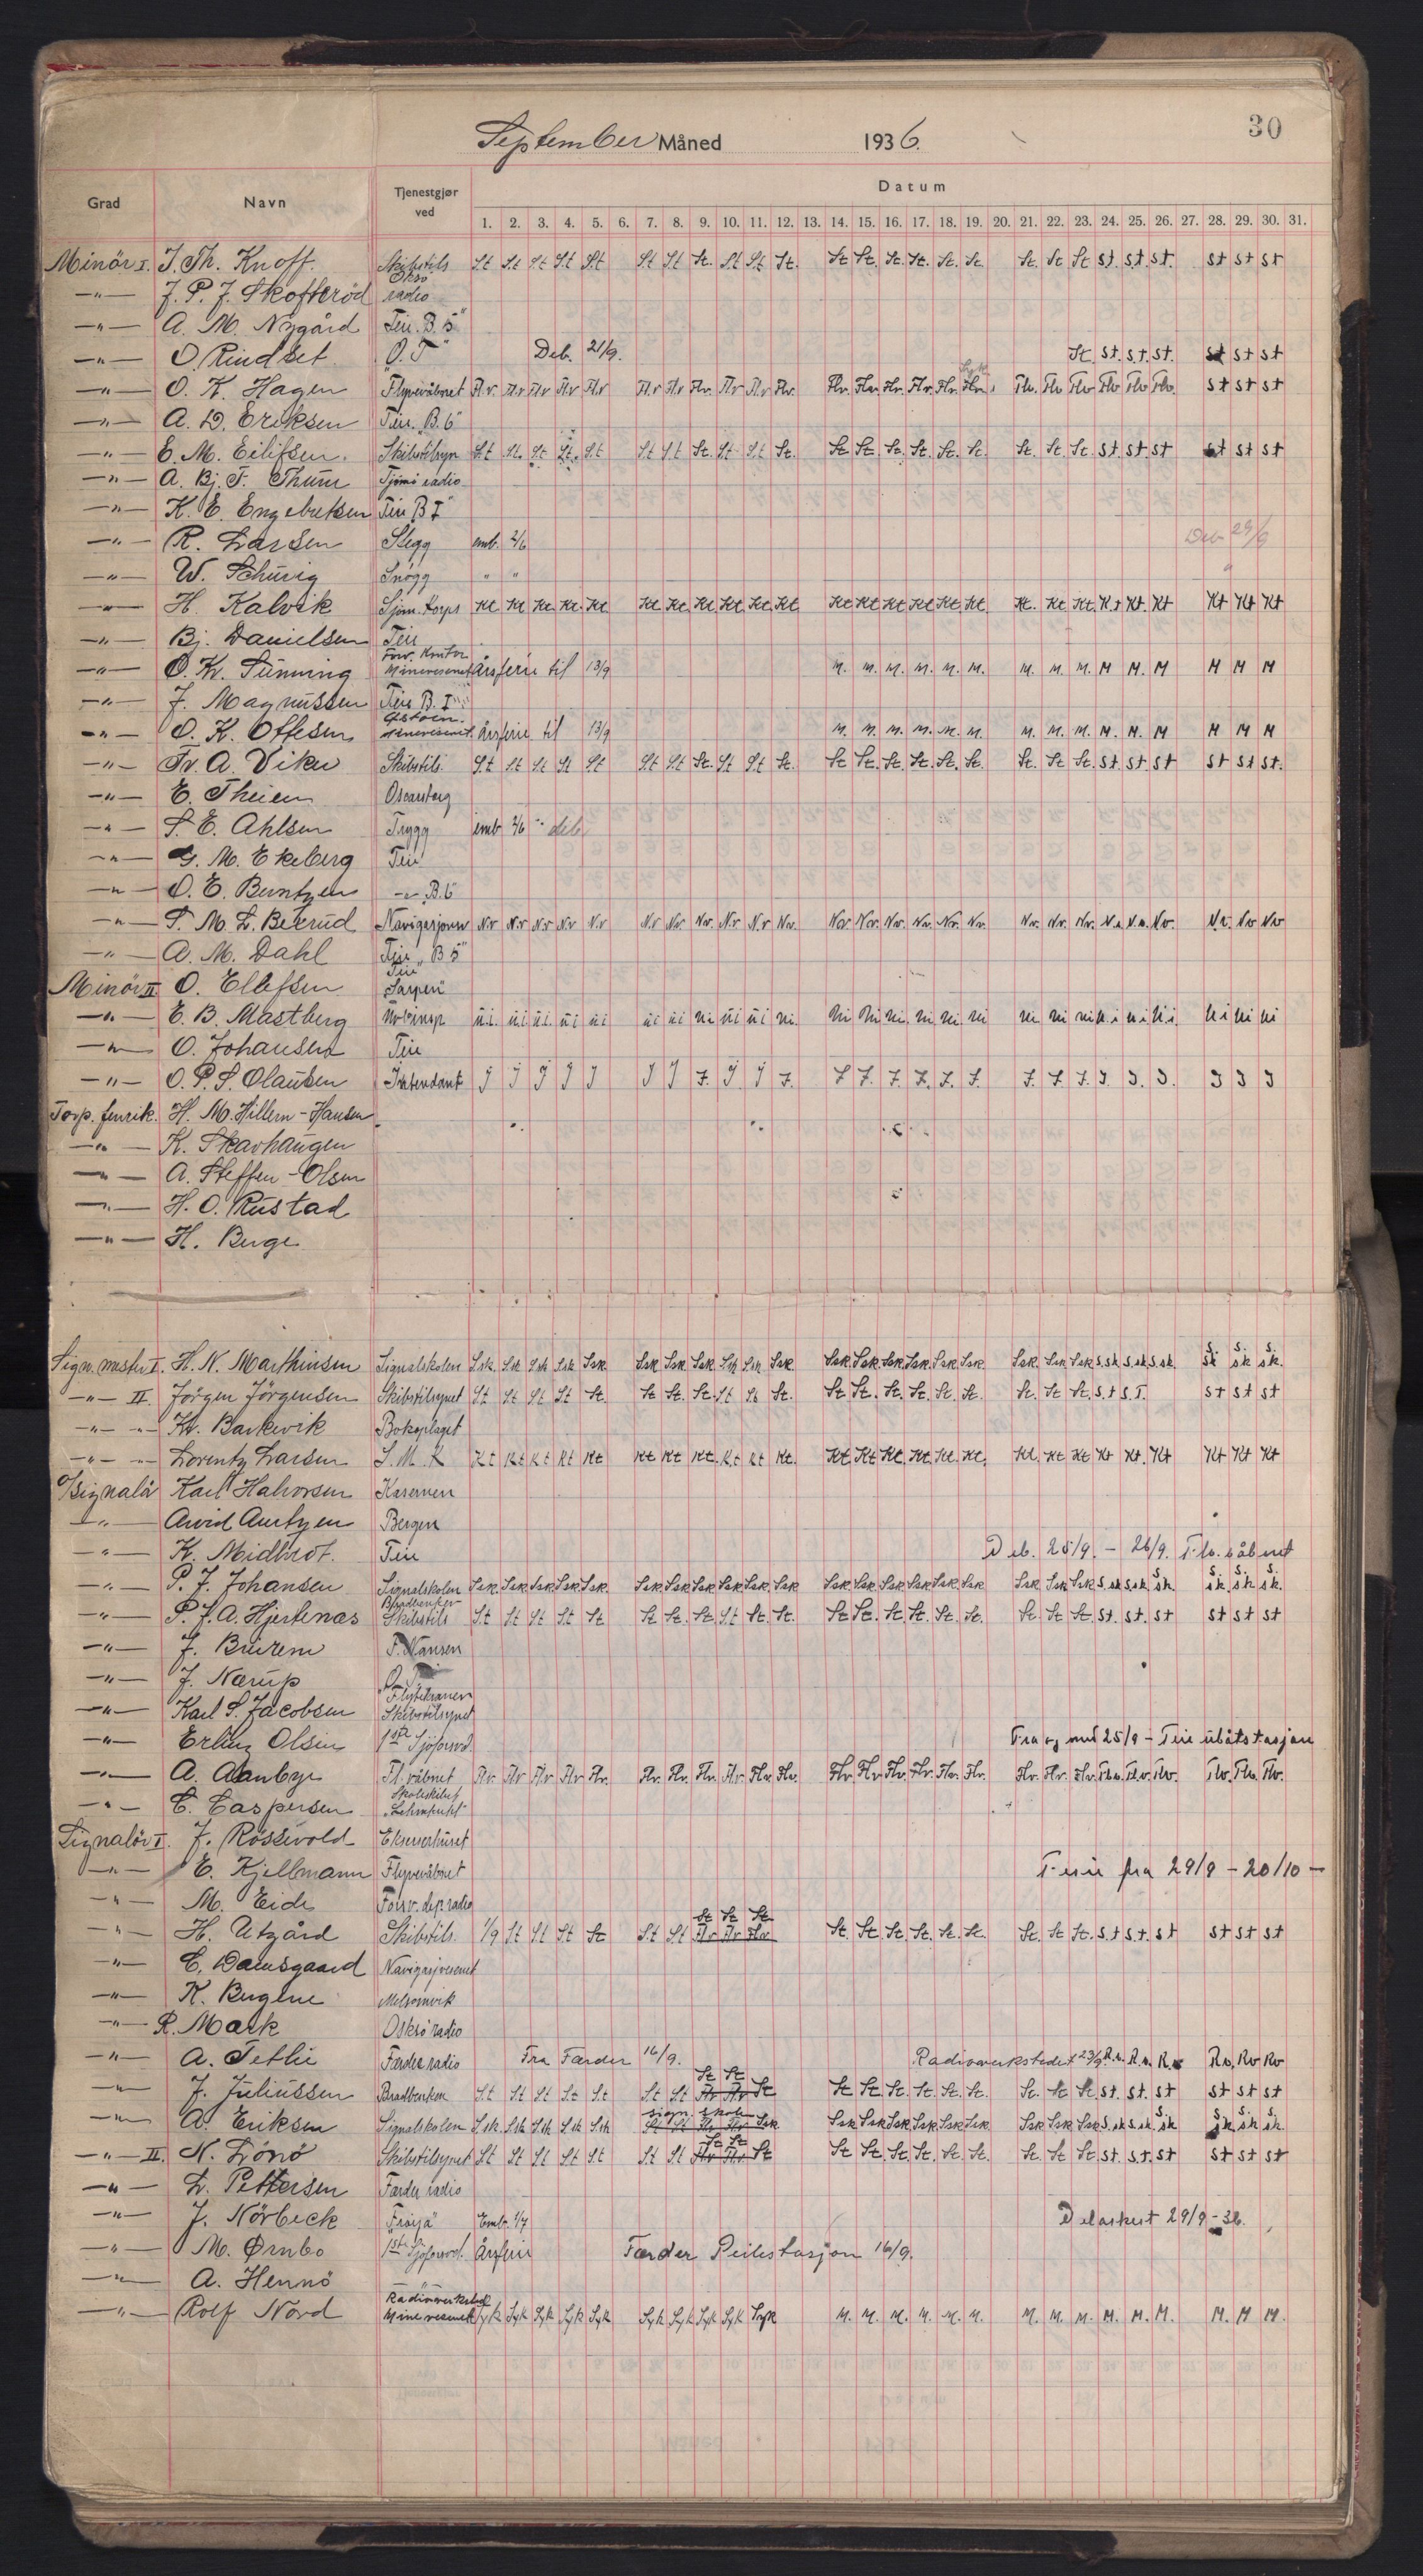 30
September Måned 1936.
Grad Navn Tjenestgjør ved Datum
1. 2. 3. 4. 5. 6. 7. 8. 9. 10. 11. 12. 13. 14. 15. 16. 17. 18. 19. 20. 21. 22. 23. 24. 25. 26. 27. 28. 29. 30. 31.
Minör I. J. Th. Knoff. Skibstils St St St St St St St St. St St St. St St. St. St. St. St. St. St St St. St. St. St St St
—"— J. P. J. Skofteröd Oksö radio
—"— A. M. Nygård Teie. B. 5"
—"— O. Rindset "O. T" Deb. 21/9. St. St. St. St. St St St
—"— O. K. Hagen Flyvevåbnet Fl.v. Fl.v Fl.v Fl.v Fl.v Fl.v Fl.v Flv. Fl.v Fl.v Flv. Flv. Flv. Flv. Flv. Flv. Flv. Flv. Flv Flv Flv Flv Flv. St St St
—"— A. D. Eriksen Teie. "B. 6"
—"— E. M. Eilifsen. Skibstilsyn St St. St St. St St St St. St St St. St St. St. St. St. St. St. St. St. St. St. St St St St
—"— A. Bj. F. Thum Tjømö radio
—"— K. E. Engebretsen Teie "B I"
—"— R. Larsen Stegg emb. 2/6 Deb 29/9
—"— W. Schuvig Snögg " " "
—"— H. Kalvik Sjøm. Korps Kt Kt Kt. Kt. Kt Kt Kt. Kt Kt Kt. Kt Kt Kt Kt Kt Kt. Kt Kt. Kt Kt. Kt Kt. Kt Kt Kt Kt
—"— Bj. Danielsen Teie
—"— O. Kr. Sünning Forv. Kontor Minevesenet årsferie til 13/9 M. M. M. M. M. M. M. M. M. M M. M M M M
—"— J. Magnussen Teie B. I"
—"— O. K. Ottesen Minevesenet årsferie til 13/9 M. M. M. M. M. M. M. M. M. M. M. M M M M
—"— Fr. A. Viken Skibstils. St St St St St St St St. St St St. St St. St. St. St. St. St. St St. St. St. St St St St.
—"— E. Theien Oscarsborg
—"— S. E. Ahlsen Trygg emb 2/6 " deb
—"— G. M. Ekeberg Teie
—"— O. E. Berntzen —"— B. 6"
—"— P. M. L. Bekrud Navigasjonsv N.v N.v N.v N.v N.v N.v Nv. Nv. N.v N.v Nv. Nv. Nv. Nv. Nv. Nv. Nv. Nv. Nv. Nv. N.v N.v. Nv. N.v. Nv Nv
—"— A. M. Dahl Teie "B 5"
Minör II O. Ellefsen Teie "Sarpen"
—"— E. B. Mastberg Uv.b.insp u.i. u.i u.i. ui ui ui ui ui ui ui ui. Ui Ui Ui. Ui Ui Ui Ui Ui Ui U.i U.i U.i. Ui Ui Ui
—"— O. Johansen Teie
—"— O. P. S. Olausen Intendant J J J J J J J J. J J J. J J. J. J. J. J. J. J. J. J. J. J. J J J
Torp. fenrik. H. M. Hillern-Hansen
—"— K. Skavhaugen
—"— A. Steffen-Olsen
—"— H. O. Rustad
—"— H. Berge
Sign. mester I. H. N. Marthinsen Signalskolen S.sk. S.sk S.sk S.sk Ssk Ssk Ssk Ssk S.sk S.sk Ssk Ssk Ssk Ssk. Ssk. Ssk Ssk. Ssk. Ssk Ssk S.sk S.sk S.sk S.sk S.sk S.sk.
—"— II. Jörgen Jörgensen Skibstilsynet St St St St St. St St. St. St St St. St St. St. St. St. St. St. St St. S.t S.t. St St St
—"— "— Kr. Barkevik Boksplaget
—"— "— Lorentz Larsen S. M. K Kt Kt Kt Kt Kt Kt Kt Kt. Kt Kt Kt. Kt Kt Kt. Kt. Kt. Kt. Kt. Kt Kt Kt Kt. Kt Kt Kt Kt
O/Signalör Karl Halvorsen Kasernen
—"— Arvid Aurtzen Bergen
—"— K. Midbröt. Teie Deb. 25/9. – 26/9. Fl.v. våbnet
—"— P. J. Johansen Signalskolen Ssk. Ssk Ssk Ssk Ssk. Ssk Ssk Ssk Ssk Ssk Ssk Ssk. Ssk. Ssk Ssk Ssk Ssk Ssk Ssk Ssk S.sk S.sk S.sk S.sk. S.sk S.sk.
—"— P. J. A. Hjertenæs Bradbenken Skibstils St St St St St St St. St St St. St. St St. St. St. St. St. St. St St. St. St. St St St St
—"— J. Burem F. Nansen
—"— J. Nærup O. T
—"— Karl S. Jacobsen Flytekranen Skibstilsynet
—"— Erling Olsen 1ste Sjöforsvd. Fra og med 25/9 – Teie ubåtstasjon
—"— A. Aanbye Fl. våbnet Fl.v Fl.v Fl.v Fl.v Flv. Flv. Flv. Flv Fl.v Flv Flv. Flv Flv Flv. Flv. Flv. Flv. Flv. Flv. Flv. Flv. Fl.v. Flv. Flv. Flv. Flv.
—"— C. Caspersen Skoleskibet
Signalör I. J. Rössevold Ekserserhuset
—"— E. Kjellmann Flyvevåbnet Ferie fra 29/9 – 20/10 –
—"— M. Eide Forsv. dep. radio
—"— H. Utgård Skibstils. 1/9 St St St St St St St St St Flv Flv Flv St. St. St. St. St. St. St. St St. S.t S.t. St St St St
—"— C. Damsgaard Navigasjvesenet
—"— K. Bugene Melsomvik
—"— R. Mørk Osksö radio
—"— A. Tethie Færder radio Fra Færder 16/9. Radioverkstedet 23/9 R.v. R.v. R.v Rv. Rv Rv
—"— J. Juliussen Bradbenken St St St St St St St St St Flv Flv St St St. St. St. St. St. St. St St. St. St. St St St St
—"— A. Eriksen Signalskolen S.sk. S.sk S.sk S.sk S.sk sign. skole St St Flv Flv Ssk Ssk Ssk Ssk Ssk Ssk Ssk Ssk Ssk Ssk S.sk S.sk S.sk S.sk S.sk S.sk.
—"— II. N. Lönö Skibstilsynet St St St St St St St St St Flv Flv St St St. St. St. St. St. St. St St. St. S.t. St St St St
—"— L. Pettersen Færder radio
—"— J. Nörbeck "Fröya" Emb. 1/7 Delaskert 29/9-36.
—"— M. Ørnbo 1ste Sjöforsvd. årsferie Færder Peilestasjon 16/9.
—"— A. Hennö
—"— Rolf Nord Radioverksted Minevesenet Syk Syk Syk Syk Syk Syk Syk Syk Syk Syk M. M. M. M. M. M. M. M. M. M. M. M. M. M M.